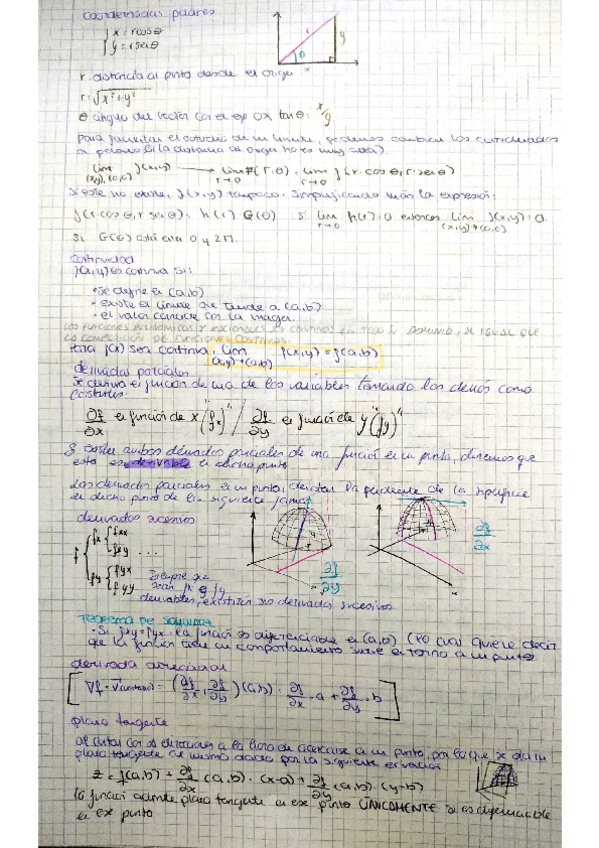 coordenadas polares
{ x = r cos θ
{ y = r sen θ
r
y
θ
x
r: distancia al punto desde el origen
r = √x²+y²
θ ángulo del vector con el eje OX tan θ:
para facilitar el estudio de un límite, podemos cambiar las coordenadas
a polares (si la distancia al origen no es muy
lim f(x,y) → lim (r·θ) = lim f(r·cos θ, r·sen θ)
(x,y)→(0,0) r→0 r→0
si este no existe, f(x,y) tampoco. Simplificando más la expresión:
f(r·cos θ, r sen θ) = h(r) G(θ) si lim h(r) = 0 entonces lim f(x,y)=0
r→0 (x,y)→(0,0)
si G(θ) está entre 0 y 2π.
continuidad
f(x,y) es continua si:
• se define en (a,b)
• existe el límite que tiende a (a,b)
• el valor coincide con la imagen.
las funciones polinómicas y racionales son continuas en todo su dominio, al igual que
la composición de funciones continuas.
para f(x) ser continua: lim f(x,y) = f(a,b)
(x,y)→(a,b)
derivadas parciales
Se deriva en función de una de las variables tomando las demás como
constantes.
∂f/∂x en función de x "(fx)" / ∂f/∂y en función de y "(fy)"
Si existen ambas derivadas parciales de una función en un punto, diremos que
esta es derivable en dicho punto
Las derivadas parciales en un punto, denotan la pendiente de la superficie
en dicho punto de la siguiente forma:
derivadas sucesivas
f { fx { fxx
fxy ...
fy { fyx
fyy
Siempre que
sean fx y fy
derivables, existirán sus derivadas sucesivas
∂f/∂y
∂f/∂x
TEOREMA DE SCHWARZ
• Si fxy = fyx la función es diferenciable en (a,b) (lo cual quiere decir
que la función tiene un comportamiento suave en torno a un punto
derivada direccional
[∇f · v(unitario) = (∂f/∂x, ∂f/∂y)(a,b) = ∂f/∂x · a + ∂f/∂y · b]
plano tangente
al contar con dos direcciones a la hora de acercarse a un punto, por lo que se da un
plano tangente al mismo dado por la siguiente ecuación
z = f(a,b) + ∂f/∂x (a,b) · (x-a) + ∂f/∂y (a,b) · (y-b)
la función admite plano tangente en ese punto ÚNICAMENTE si es diferenciable
en ese punto